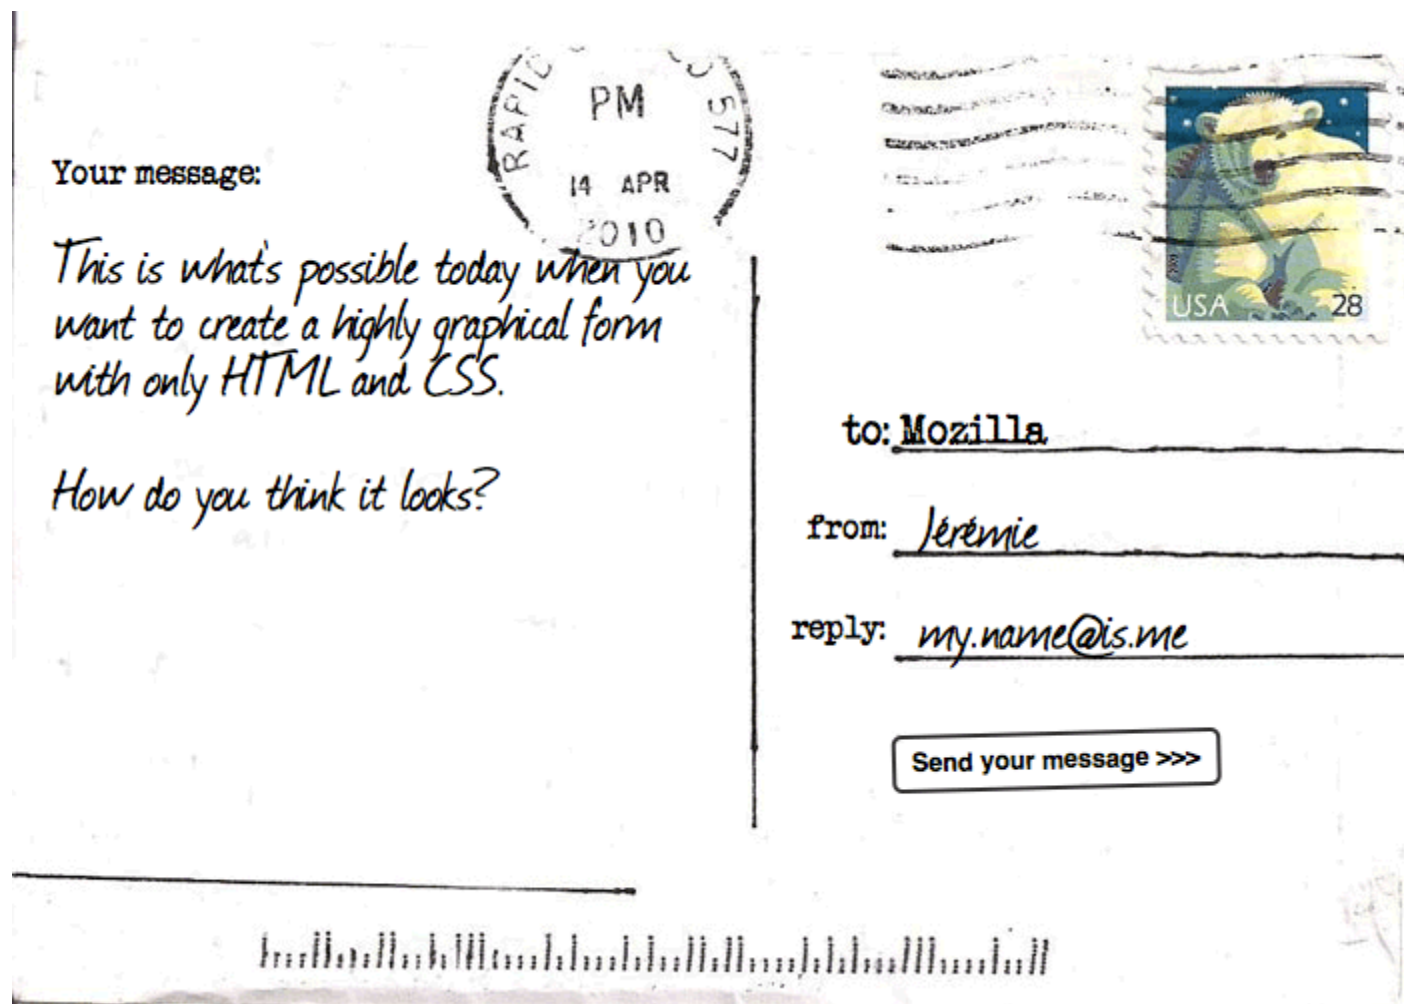 RAPID 577
PM
14 APR
2010
USA 28
Your message:
This is what's possible today when you
want to create a highly graphical form
with only HTML and CSS.
How do you think it looks?
to: Mozilla
from: Jérémie
reply: my.name@is.me
Send your message >>>